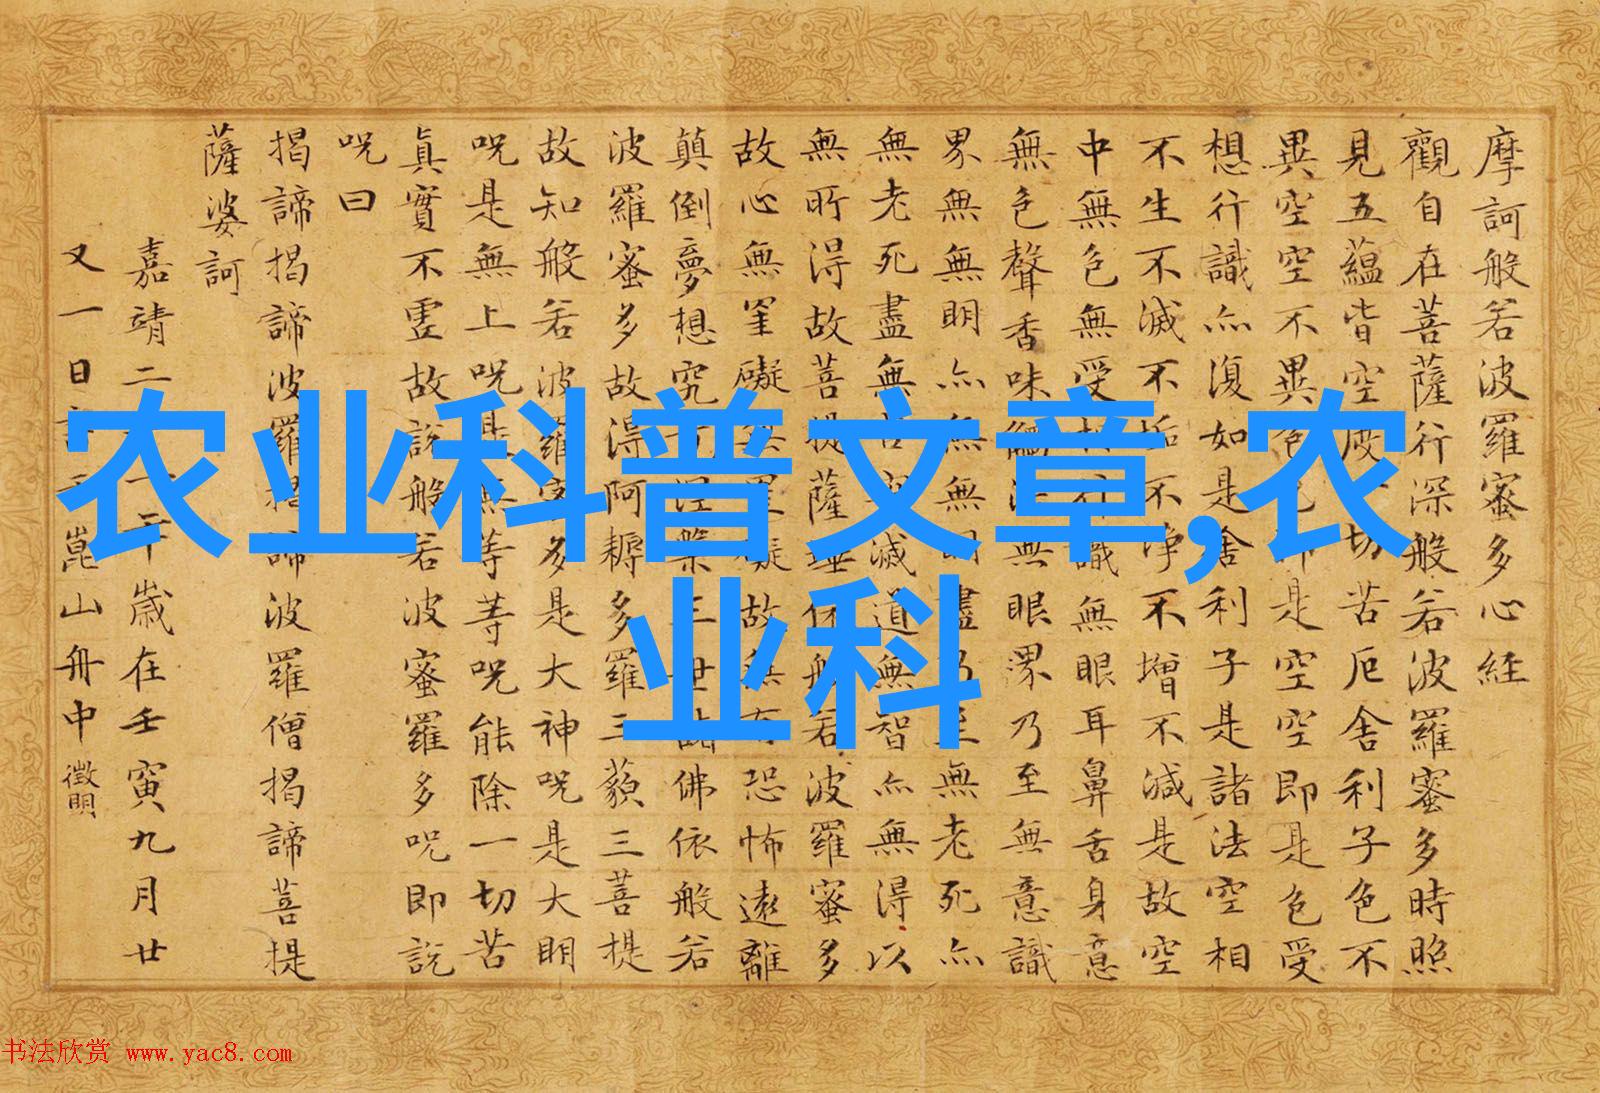 农业科普文章,农
业科
摩訶般若波羅蜜多心経
觀自在菩薩行深般若波羅蜜多時照
見五蘊皆空度一切苦厄舍利子色不
異空空不異色色即是空空即是色受
想行識亦復如是舍利子是諸法空相
不生不滅不垢不淨不增不減是故空
中無色無受想行識無眼耳鼻舌身意
無色聲香味觸法無眼界乃至無意識
界無無明亦無無明盡乃至無老死亦
無老死盡無苦集滅道無智亦無得以
無所得故菩提薩埵依般若波羅蜜多
故心無罣礙無罣礙故無有恐怖遠離
顛倒夢想究竟涅槃三世諸佛依般若
波羅蜜多故得阿耨多羅三藐三菩提
故知般若波羅蜜多是大神咒是大明
咒是無上咒是無等等咒能除一切苦
真實不虛故說般若波羅蜜多咒即說
咒曰
揭諦揭諦波羅揭諦波羅僧揭諦菩提
薩婆訶
嘉靖二十一年歲在壬寅九月廿
又一日崑山舟中 徵明
书法欣赏 www.yac8.com